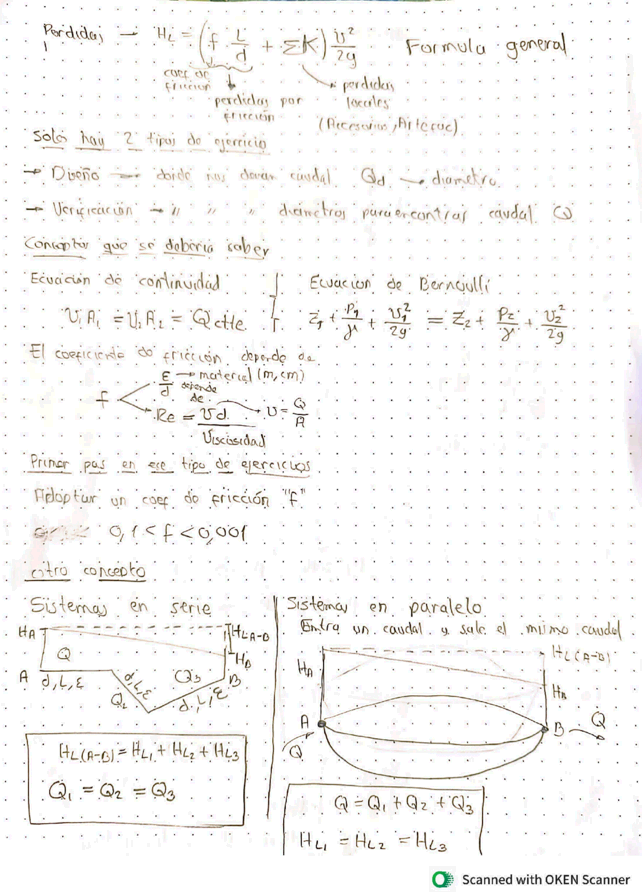 Perdidas → HL = (f L/d + ΣK) v²/2g Formula general
coef de fricción
perdidas por fricción
perdidas locales
(Accesorios, Artefac)
Solo hay 2 tipos de ejercicio
→ Diseño → donde nos daran caudal Qd → diametro
→ Verificación → " " " diametros para encontrar caudal Q
Conceptos que se deberia saber
Ecuación de continuidad
V1A1 = V2A2 = Qctte
Ecuacion de Bernoulli
Z1 + P1/γ + V1²/2g = Z2 + P2/γ + V2²/2g
El coeficiente de fricción depende de
f
ε/d → material (m, cm)
depende de
Re = Vd/Viscosidad
→ V = Q/A
Primer pas en ese tipo de ejercicios
Adoptar un coef de fricción "f"
0,1 < f < 0,001
Otro concepto
Sistemas en serie
HA
HLA-B
HB
Q
A d, L, ε
d, L, ε
Q2
Q3
d, L, ε
B
HL(A-B) = HL1 + HL2 + HL3
Q1 = Q2 = Q3
Sistemas en paralelo
Entra un caudal y sale el mismo caudal
HA
HL(A-B)
HB
A
B
Q
Q
Q = Q1 + Q2 + Q3
HL1 = HL2 = HL3
Scanned with OKEN Scanner